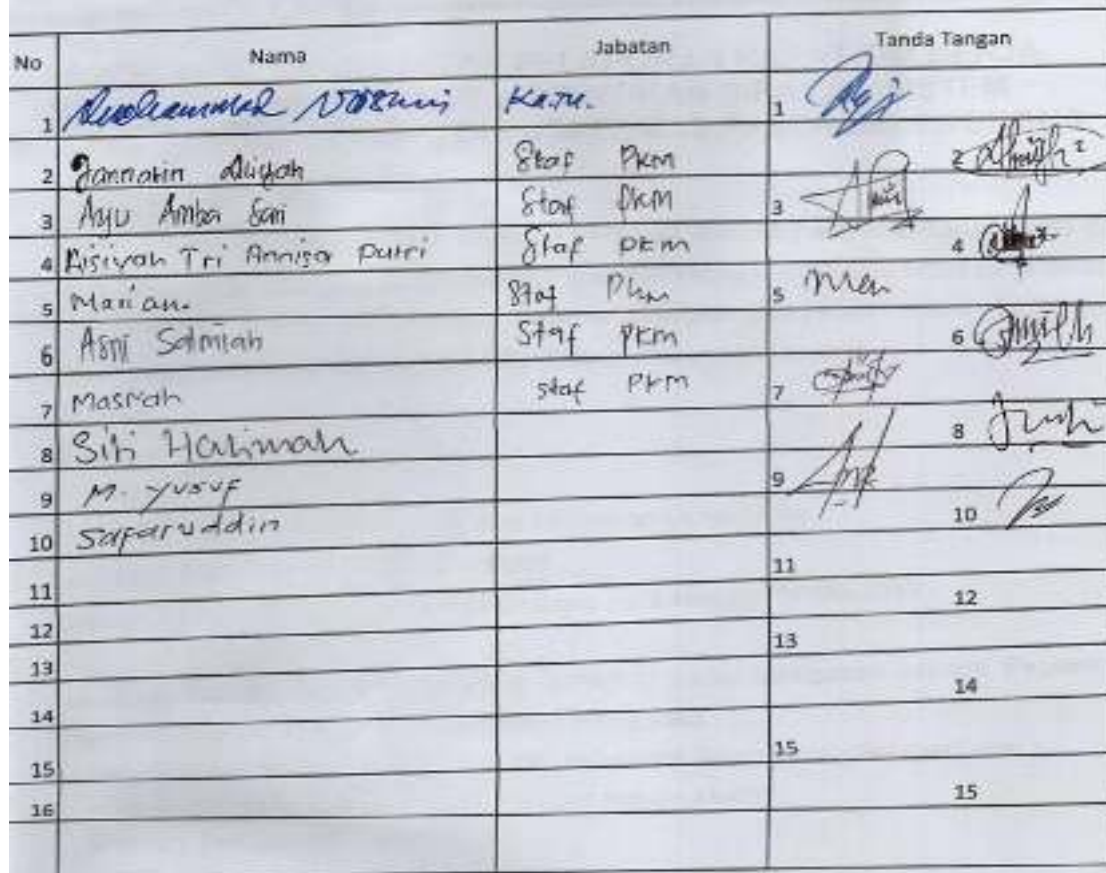 No Nama Jabatan Tanda Tangan
1 Muhammad Ka.TU. 1
2 Jannatin Aliyah Staf Pkm 2
3 Ayu Amba Sari Staf Pkm 3
4 Aisiyah Tri Annisa Putri Staf Pkm 4
5 Marian. Staf Pkm 5
6 Asni Salmiah Staf Pkm 6
7 Masrah Staf Pkm 7
8 Siti Halimah 8
9 M. Yusuf 9
10 Safaruddin 10
11 11
12 12
13 13
14 14
15 15
16 15